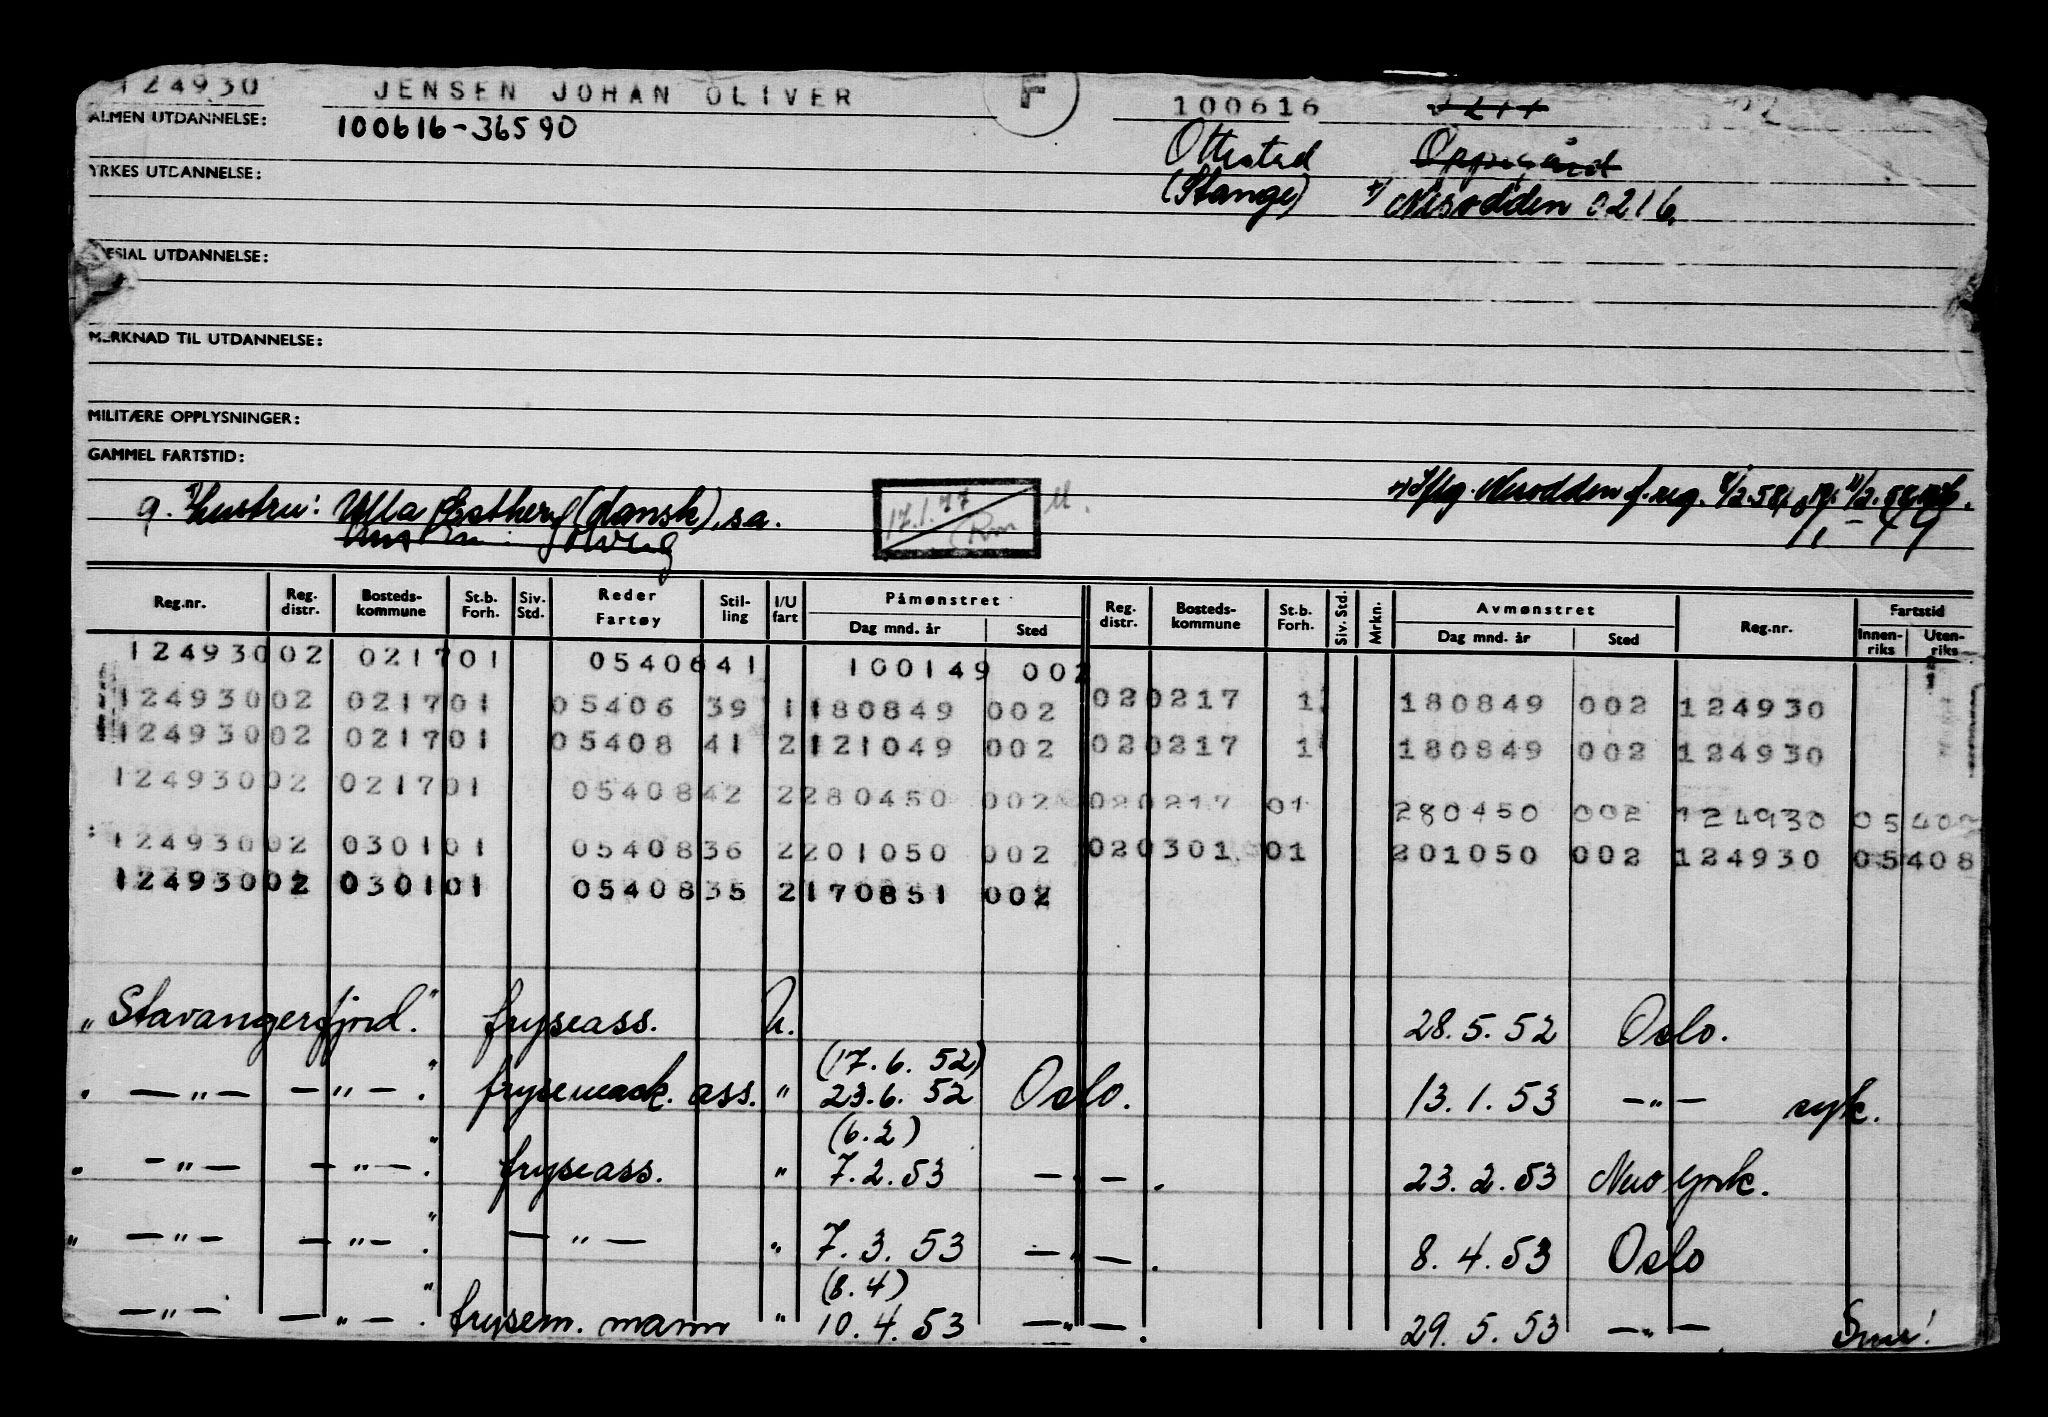 124930 JENSEN JOHAN OLIVER F 100616
ALMEN UTDANNELSE: 100616-36590 Ottestad Oppegård
YRKES UTDANNELSE: (Stange) Nesodden 0216.
SPESIAL UTDANNELSE:
MERKNAD TIL UTDANNELSE:
MILITÆRE OPPLYSNINGER:
GAMMEL FARTSTID:
g. Hustru: Ulla Esther (dansk), s.a. 17.1.77 Nesodden f.reg.
Solveig
Reg.nr. Reg. distr. Bosteds-kommune St.b. Forh. Siv. Std. Reder Fartøy Stil-ling I/U fart Påmønstret Reg. distr. Bosteds-kommune St.b. Forh. Siv. Std. Mrkn. Avmønstret Reg.nr. Fartstid
Dag mnd. år Sted Dag mnd. år Sted Innen-riks Uten-riks
124930 02 0217 01 05406 41 100149 002
124930 02 0217 01 05406 39 1 180849 002 02 0217 1 180849 002 124930
124930 02 0217 01 05408 41 2 121049 002 02 0217 1 180849 002 124930
124930 02 0217 01 05408 42 2 280450 002 02 0217 01 280450 002 124930 05408
124930 02 0301 01 05408 36 2 201050 002 02 0301 01 201050 002 124930 05408
124930 02 0301 01 05408 35 2 170851 002
„Stavangerfjord." fryseass. U. 28.5.52 Oslo.
(17.6.52)
" — " — — " — . " frysemask. ass. " 23.6.52 Oslo. 13.1.53 — " — syk.
(6.2)
" — " — — " — . " fryseass. " 7.2.53 — " — . 23.2.53 New York.
" — " — — " — . " — " — " 7.3.53 — " — . 8.4.53 Oslo
(8.4)
— " — — " — . " frysem. mann " 10.4.53 — " — . 29.5.53 — " — Snu!